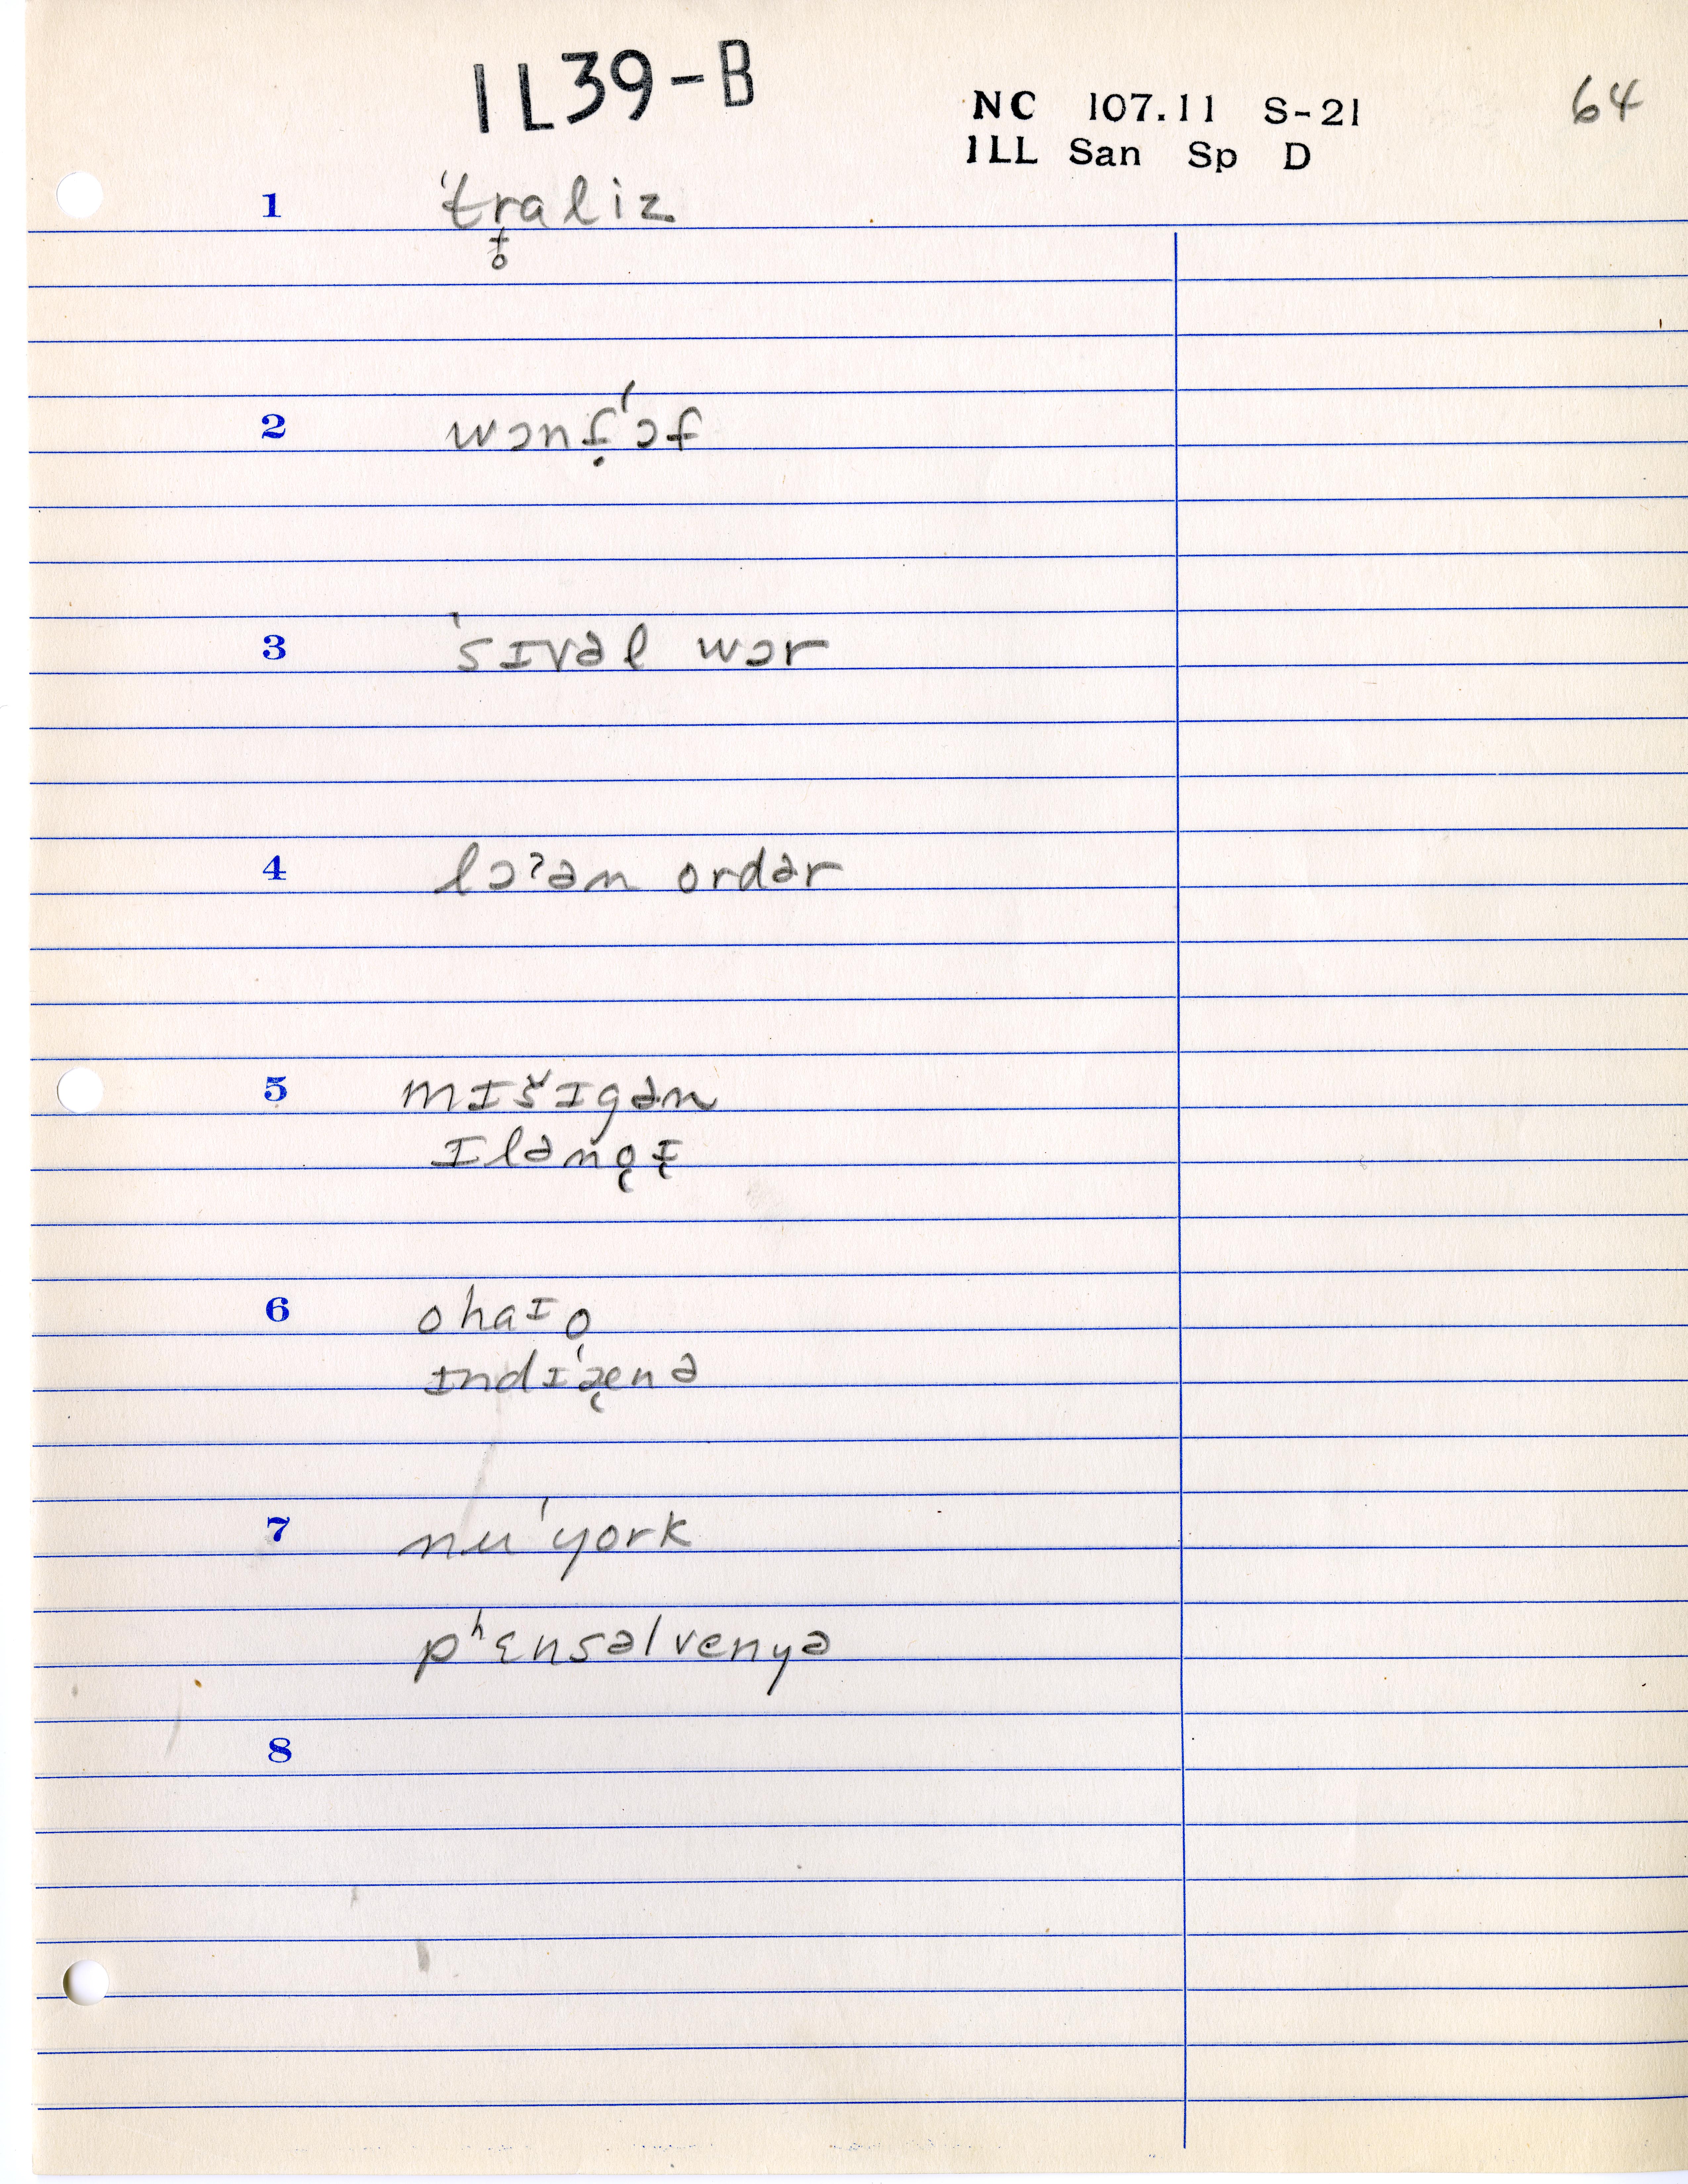 IL39-B
NC 107.11 S-21
64
ILL San Sp D
1 ˈtr̥aliz
2 wɔnf̣ˈɔf
3 ˈsɪvəl wɔr
4 lɔˀən ordər
5 mɪšɪgən
ɪlənǫɪ̨
6 ohaɪo̩
ɪndɪˈæ̨nə
7 nuˈyork
pʰɛnsəlvenyə
8